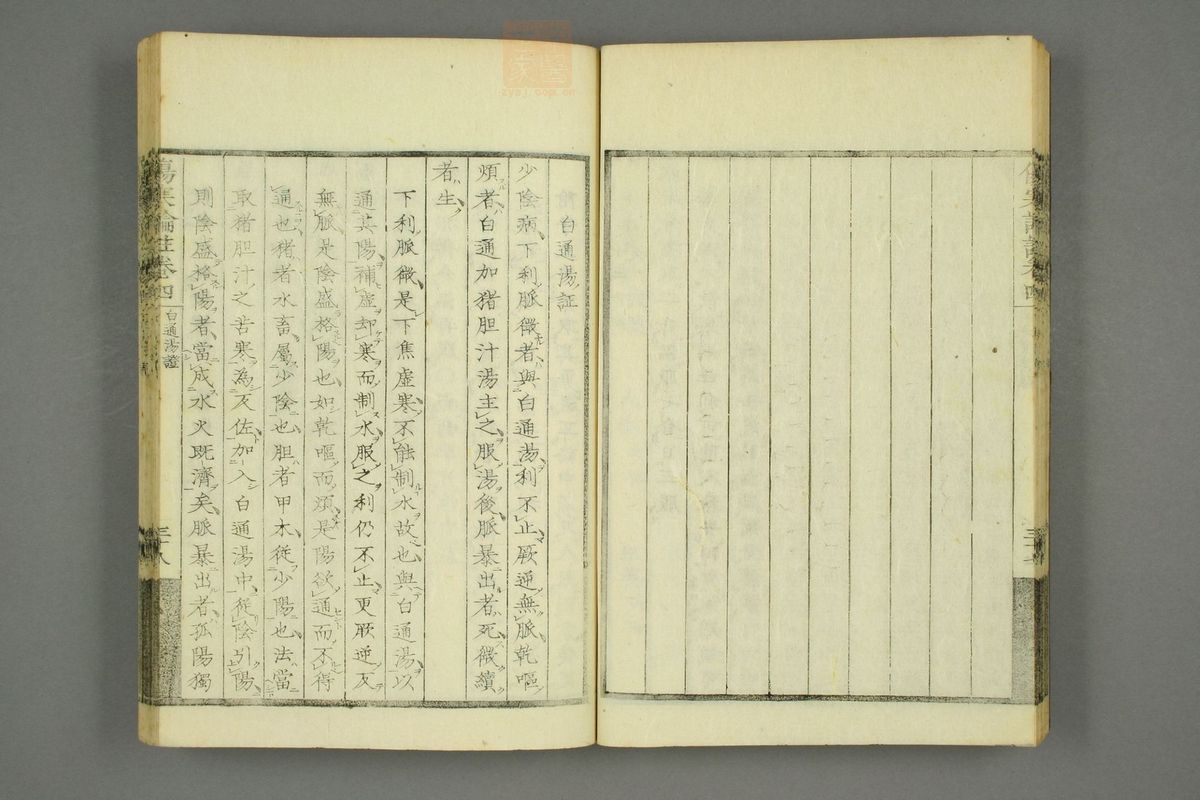 白通湯証
少陰病下利脈微者與白通湯利不止厥逆無脈乾嘔
煩者白通加猪胆汁湯主之服湯後脈暴出者死微續
者生
下利脈微是下焦虛寒不能制水故也與白通湯以
通其陽補虛却寒而制水服之利仍不止更厥逆反
無脈是陰盛格陽也如乾嘔而煩是陽欲通而不得
通也猪者水畜屬少陰也胆者甲木從少陽也法當
取猪胆汁之苦寒為反佐加入白通湯中從陰引陽
則陰盛格陽者當成水火既濟矣脈暴出者孤陽獨
傷寒論註卷四
白通湯證
三十八
zysj.com.cn